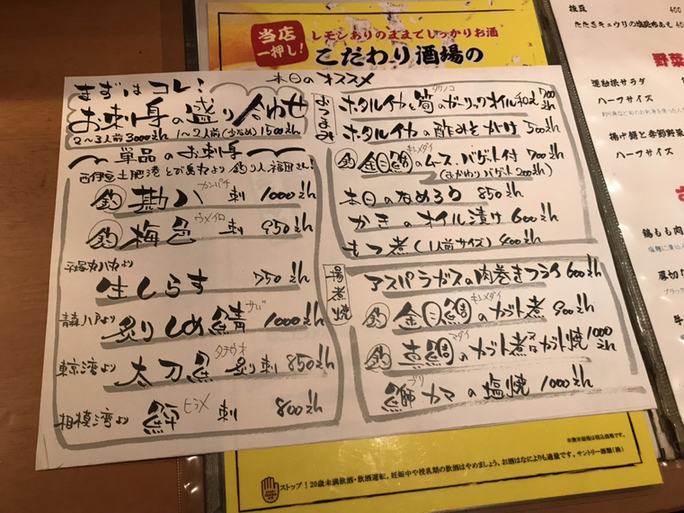 当店
一押し!
レモンありのままでしっかりお酒
こだわり酒場の
本日のオススメ
まずはコレ!
お刺身の盛り合わせ
2〜3人前 3000えん 1〜2人前(少なめ)1500えん
単品のお刺身
西伊豆土肥港 とび島丸より 釣り人福田さん!
カンパチ
釣 勘八 刺 1000えん
ウメイロ
釣 梅色 刺 950えん
より
生しらす 750えん
青森八戸より 炙りしめ鯖 サバ 1000えん
東京湾より 太刀魚 タチウオ 炙り刺 850えん
相模湾より ヒラメ 刺 800えん
おつまみ
タケノコ
ホタルイカと筍のガーリックオイル和え 700えん
ホタルイカの酢みそがけ 500えん
キンメダイ
釣 金目鯛のムース、バゲット付 700えん
(おかわりバゲット200えん)
本日のなめろう 850えん
かきのオイル漬け 600えん
もつ煮(1人前サイズ) 400えん
揚煮焼
アスパラガスの肉巻きフライ 600えん
キンメダイ
釣 金目鯛のカブト煮 900えん
マダイ
釣 真鯛のカブト煮orカブト焼 1000えん
ブリ
鰤カマの塩焼 1000えん
枝豆 400
たたきキュウリの塩昆布あえ
野菜
運動族サラダ
ハーフサイズ
ハーフサイズ
鶏もも肉
厚切
ストップ!20歳未満飲酒・飲酒運転。妊娠中や授乳期の飲酒はやめましょう。お酒はなによりも適量です。サントリー酒類(株)